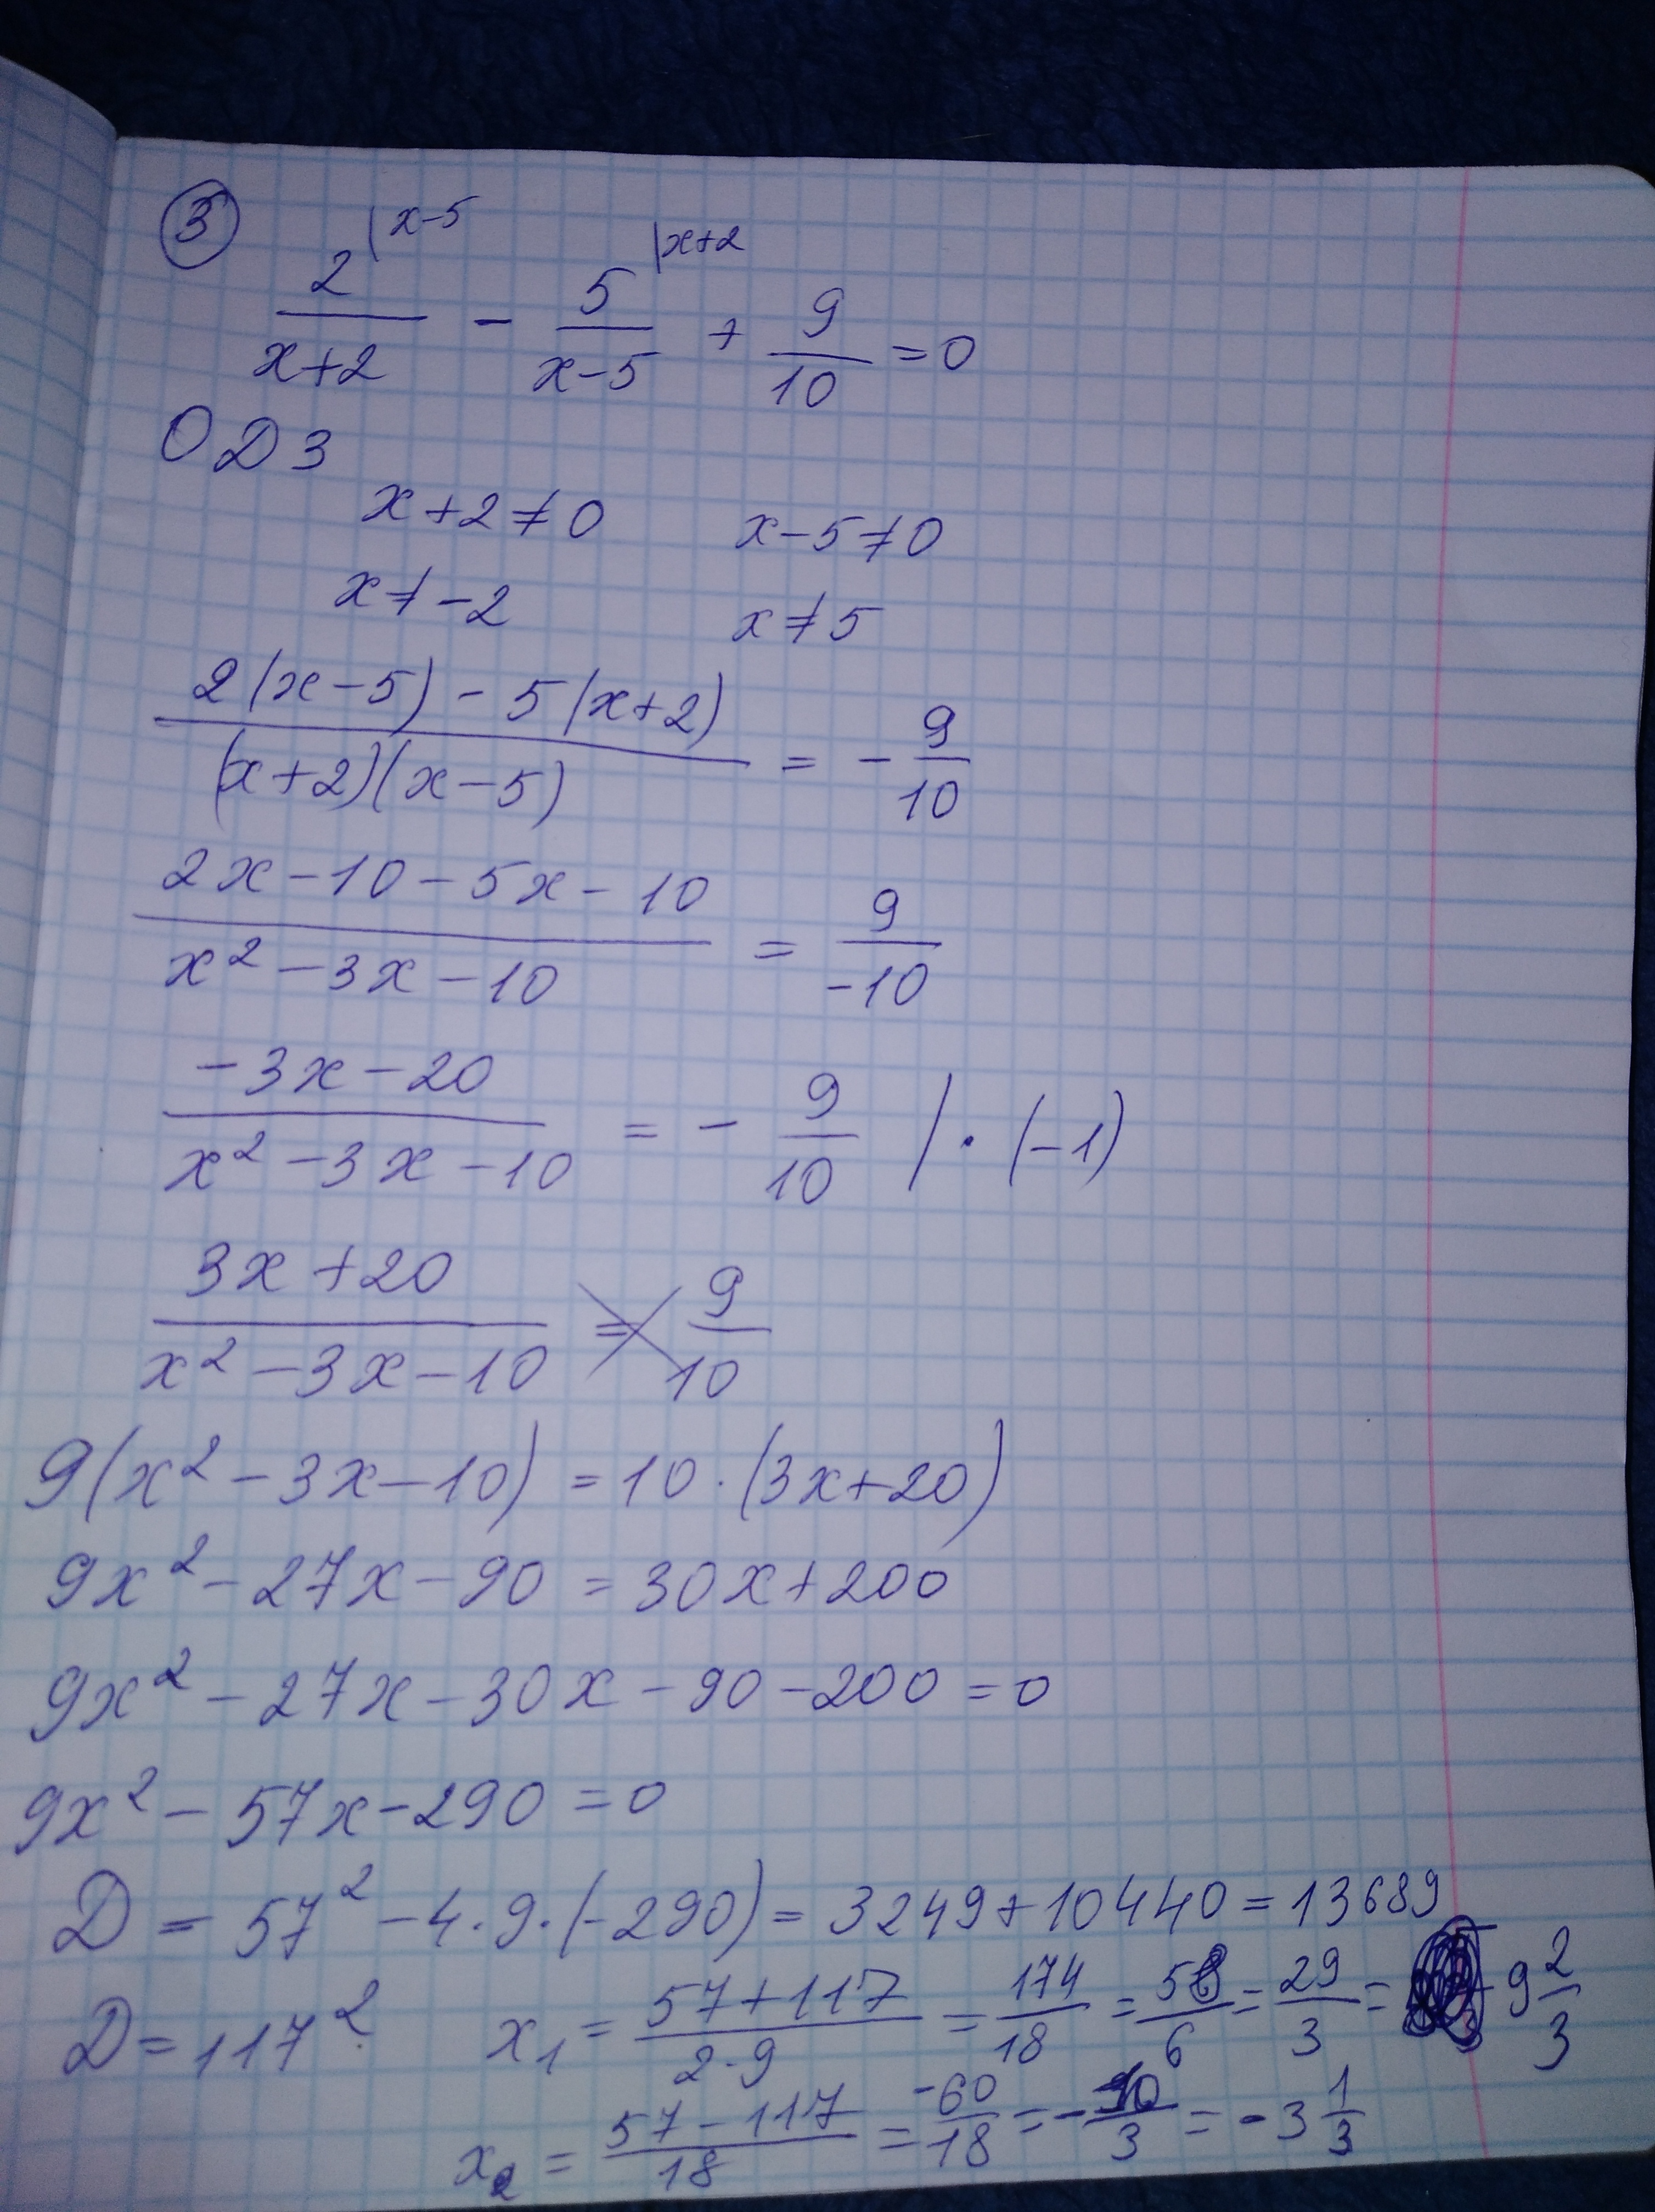 ③
2 |x-5 / x+2 - 5 |x+2 / x-5 + 9/10 = 0
ОДЗ
x+2≠0 x-5≠0
x≠-2 x≠5
2(x-5) - 5(x+2) / (x+2)(x-5) = - 9/10
2x-10-5x-10 / x²-3x-10 = 9/-10
-3x-20 / x²-3x-10 = - 9/10 | · (-1)
3x+20 / x²-3x-10 = 9/10
9(x²-3x-10) = 10·(3x+20)
9x²-27x-90 = 30x+200
9x²-27x-30x-90-200=0
9x²-57x-290=0
D = 57²-4·9·(-290) = 3249+10440 = 13689
D=117² x₁ = 57+117 / 2·9 = 174/18 = 58/6 = 29/3 = 9 2/3
x₂ = 57-117 / 18 = -60/18 = -10/3 = -3 1/3